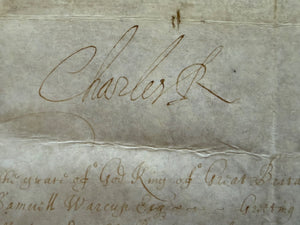 Charles R
the grace of God King of Great Brita
Samuell Warcup Esq Greeting